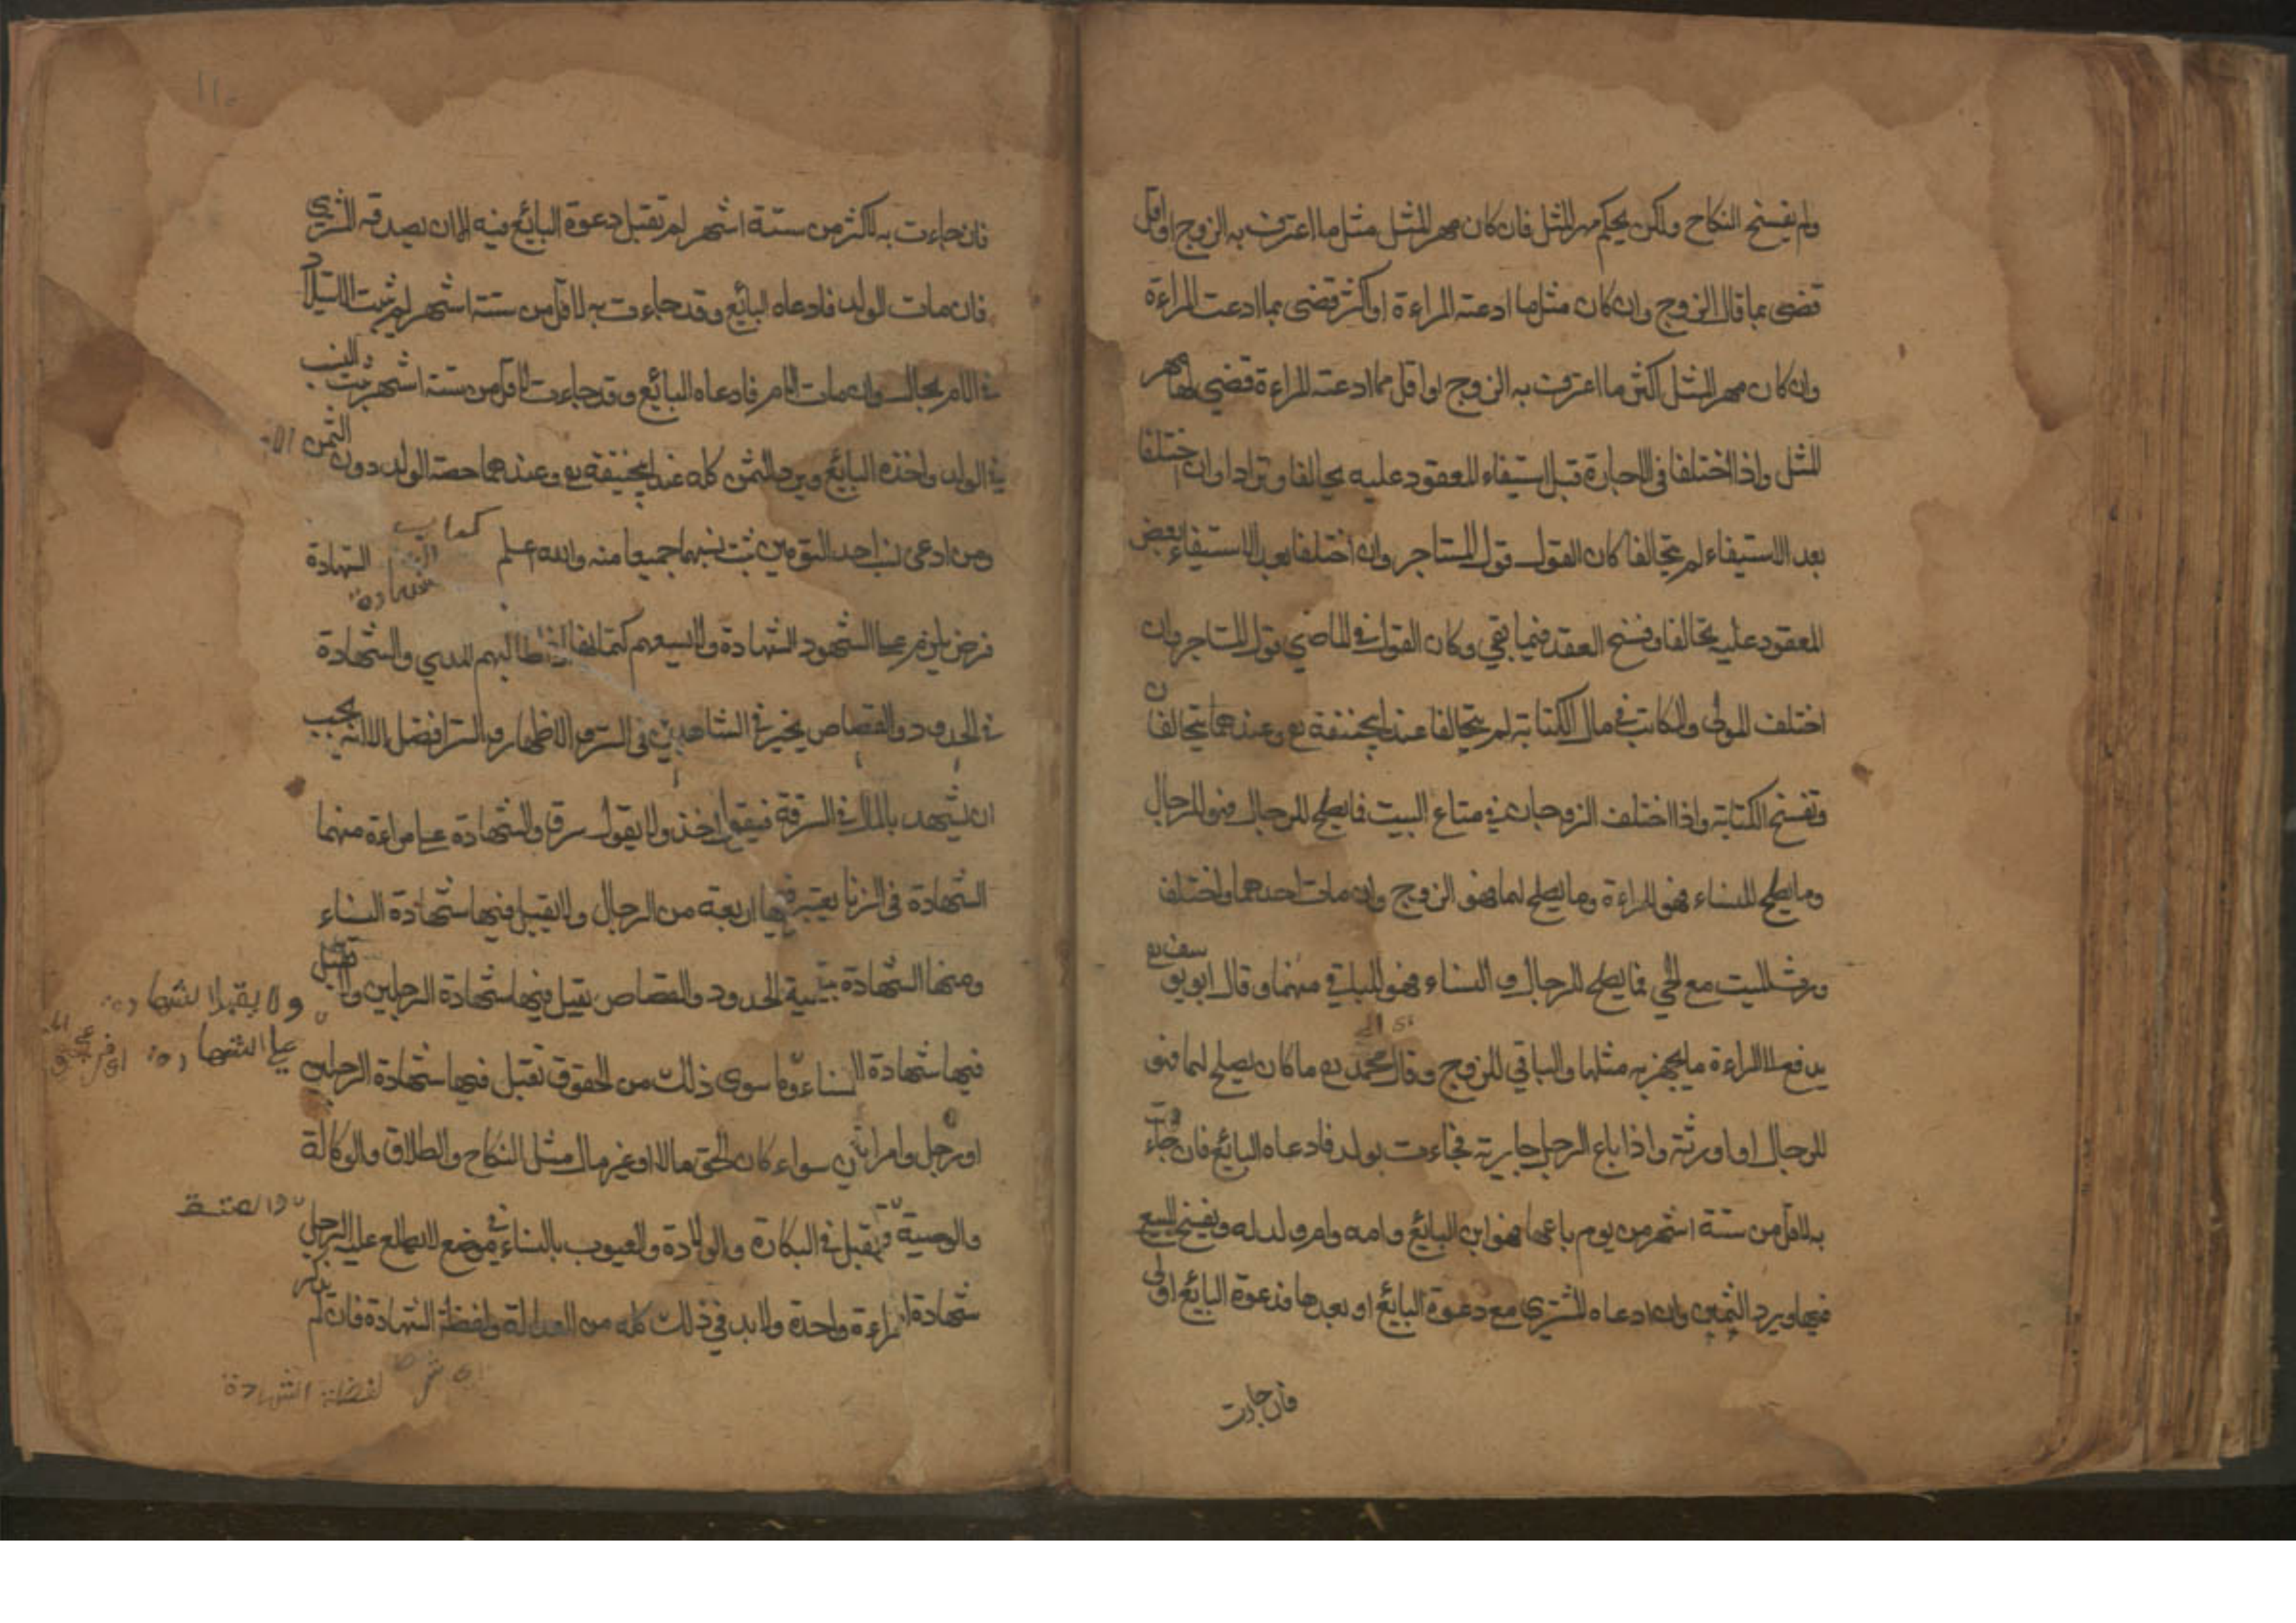 ولم يفسخ النكاح ولكن يحكم مهر المثل فان كان مهر المثل مثل ما اعترف به الزوج او اقل
قضى بما قال الزوج وان كان مثل ما ادعته المراءة او اكثر قضى بما ادعت المراءة
وان كان مهر المثل اكثر ما اعترف به الزوج او اقل مما ادعته المراءة قضي لها مهر
المثل واذا اختلفا فى الاجارة قبل استيفاء المعقود عليه يحالفا وترادا وان اختلفا
بعد الاستيفاء لم يتحالفا كان القول قول المستاجر وان اختلفا بعد الاستيفاء بعض
المعقود عليه يتحالفا وفسخ العقد فيما بقي وكان القول في الماضي قول المستاجر وان
اختلف المولى والمكاتب في مال الكتابة لم يتحالفا عند ابيحنيفة رح وعندهما يتحالفان
وتفسخ الكتابة واذا اختلف الزوجان في متاع البيت فما يصلح للرجال فهو للرجال
وما يصلح للنساء فهو للمراءة وما يصلح لهما فهو الزوج وان مات احدهما واختلف
ورثة الميت مع الحي فما يصلح للرجال والنساء فهو للباقي منهما وقال ابو يوسف رح
اي الى
يدفع الا المراءة ما يجهز به مثلها والباقي للزوج وقال محمد رح ما كان يصلح لهما فهو
للرجال او لورثته واذا باع الرجل جارية فجاءت بولد فادعاه البايع فان جاءت
به لاقل من ستة اشهر من يوم باعها فهو ابن البايع وامه وام ولد له ويفسخ البيع
فيها ويرد الثمن وان ادعاه المشتري مع دعوة البايع او بعدها فدعوة البايع اولى
فان جاءت
١١٠
فان جاءت به لاكثر من ستة اشهر لم تقبل دعوة البايع فيه الا ان يصدقه المشتري
فان مات الولد فادعاه البايع وقد جاءت به لاقل من ستة اشهر لم يثبت الاستيلاد
في الام بحال وان مات الام فادعاه البايع وقد جاءت لاقل من ستة اشهر يثبت النسب
في الولد واخذه البايع ويرد الثمن كله عند ابيحنيفة رح وعندهما حصة الولد دون الثمن
ومن ادعى نسب احد التومين ثبت نسبهما جميعا منه والله اعلم كتاب الشهادة الشهادة
فرض يلزم على الشهود الشهادة ولا يسعهم كتمانها اذا طالبهم المدعي والشهادة
في الحدود والقصاص يخير في الشاهدين في الستر والاظهار والستر افضل الا انه يجب
ان يشهد بالمال في السرقة فيقول اخذ ولا يقول سرق والشهادة على مراءة منهما
الشهادة فى الزنا يعتبر فيها اربعة من الرجال ولا يقبل فيها شهادة النساء
ومنها الشهادة بقية الحدود والقصاص يقبل فيها شهادة الرجلين ولا تقبل
ولا يقبل الشهادة
على الشهادة
فيها شهادة النساء وما سوى ذلك من الحقوق تقبل فيها شهادة الرجلين
او رجل وامراتين سواء كان الحق مالا او غير مال مثل النكاح والطلاق والوكالة
والعتق
والوصية وتقبل في البكارة والولادة والعيوب بالنساء في موضع لا يطلع عليه الرجل
شهادة امراءة واحدة ولا بد في ذلك كله من العدالة ولفظة الشهادة فان لم يذكر
لفظة الشهادة